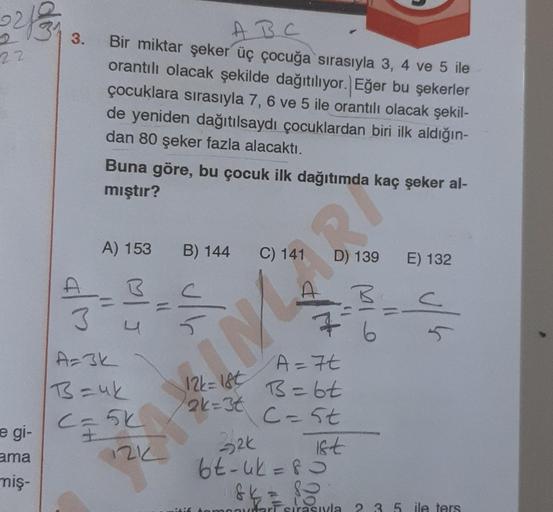 A B C
3. Bir miktar şeker üç çocuğa sırasıyla 3, 4 ve 5 ile
orantılı olacak şekilde dağıtılıyor. Eğer bu şekerler
çocuklara sırasıyla 7, 6 ve 5 ile orantılı olacak şekil-
de yeniden dağıtılsaydı çocuklardan biri ilk aldığın-
dan 80 şeker fazla alacaktı.
Buna göre, bu çocuk ilk dağıtımda kaç şeker al-
mıştır?
A) 153 B) 144 C) 141 D) 139 E) 132
A/3 = B/4 = C/5
A/7 = B/6 = C/5
A=3k
B=4k
C=5k
+
12k
12k=18t
2k=3t
A=7t
B=6t
C=5t
18t
6t-4k=80
YAYINLARI
e gi-
ama
miş-
sırasıyla 2 3 5 ile ters